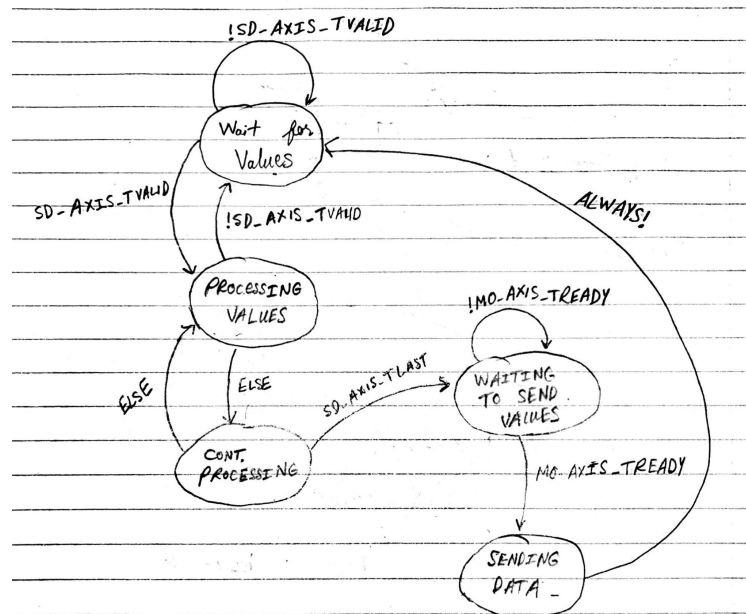 !SD-AXIS-TVALID
Wait for
Values
SD-AXIS-TVALID
!SD-AXIS-TVALID
ALWAYS!
PROCESSING
VALUES
!MO-AXIS-TREADY
ELSE
ELSE
SD-AXIS-TLAST
WAITING
TO SEND
VALUES
CONT.
PROCESSING
MO-AXIS-TREADY
SENDING
DATA